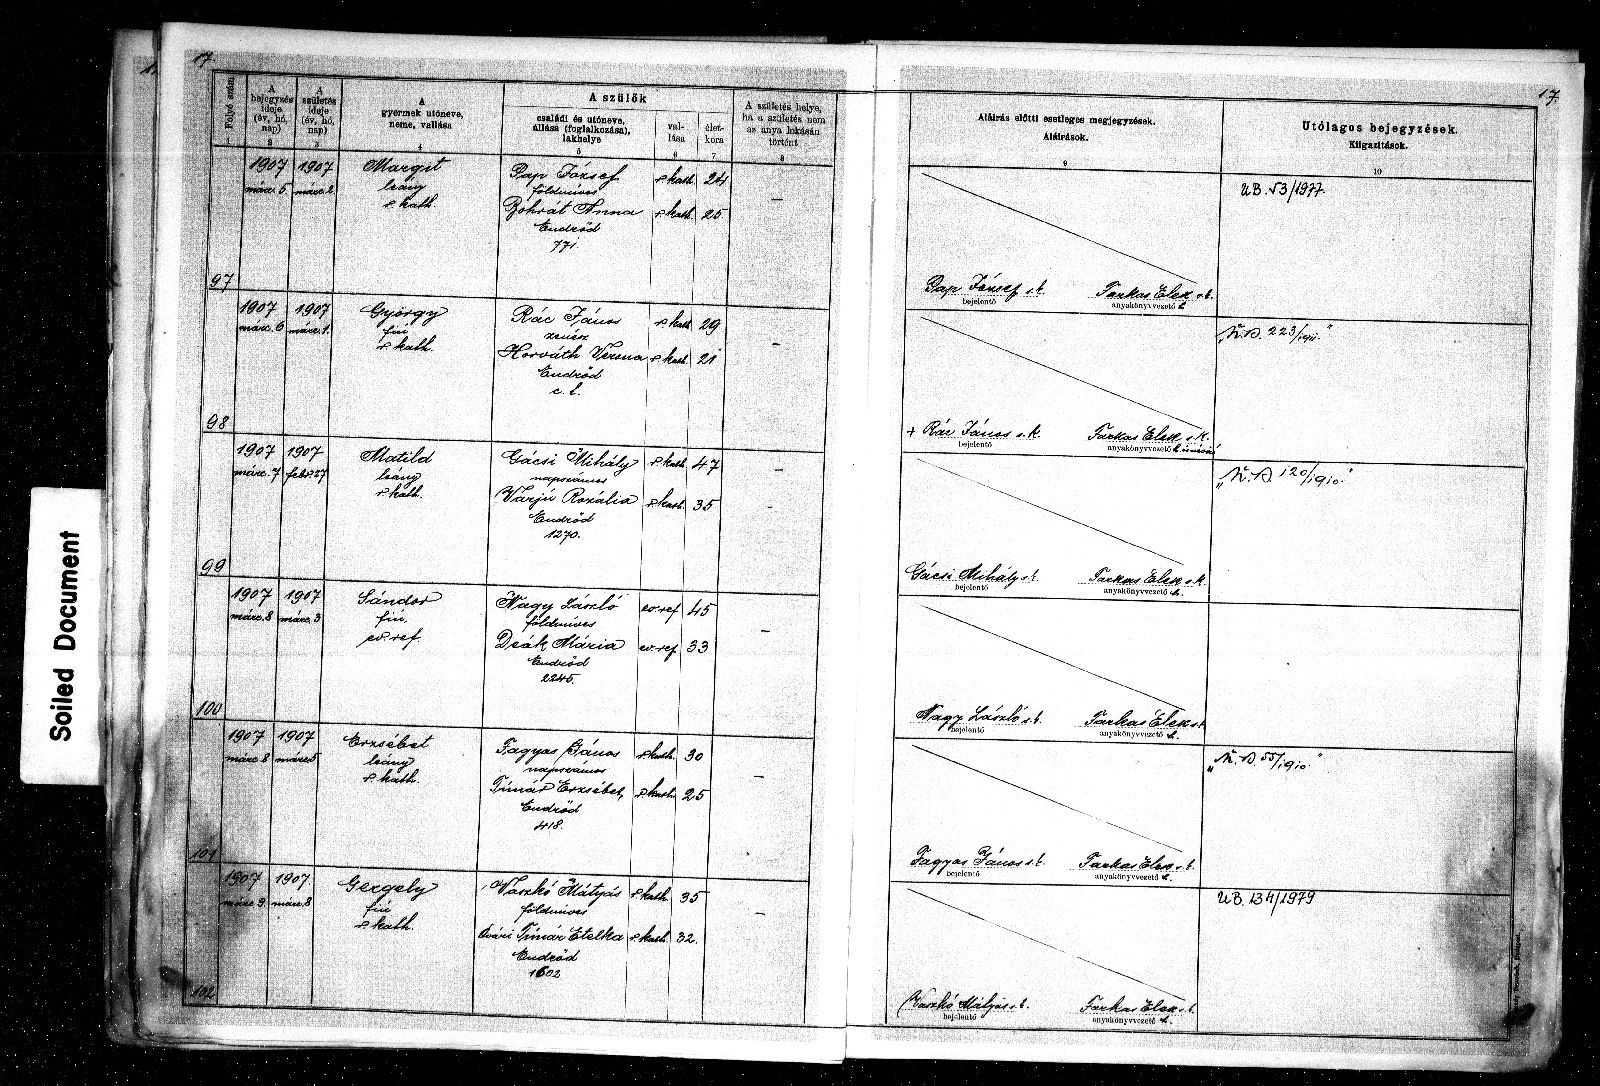 Soiled Document
17
17
Folyó szám
A bejegyzés ideje (év, hó, nap)
A születés ideje (év, hó, nap)
A gyermek utóneve, neme, vallása
A szülők
családi és utóneve, állása (foglalkozása), lakhelye
vallása
életkora
A születés helye, ha a születés nem az anya lakásán történt
Aláírás előtti esetleges megjegyzések.
Aláirások.
Utólagos bejegyzések.
Kiigazitások.
1 2 3 4 5 6 7 8 9 10
97
1907 márc. 5
1907 márc. 2
Margit
leány
r. kath.
Pap József r. kath. 24
földmíves
Zohrát Anna r. kath. 25
Endrőd
771.
–
Pap József s. k.
bejelentő
Farkas Elek s. k.
anyakönyvvezető h.
UB. 53/1977
98
1907 márc. 6
1907 márc. 1.
György
fiú
r. kath.
Rác János r. kath. 29
zenész
Horváth Verona r. kath. 21
Endrőd
c. t.
–
+ Rác János s. k.
bejelentő
Farkas Elek s. k.
anyakönyvvezető h.
„N.B. 223/1911."
99
1907 márc. 7
1907 febr. 27
Matild
leány
r. kath.
Gácsi Mihály r. kath. 47
napszámos
Varjú Rozália r. kath. 35
Endrőd
1270.
–
Gácsi Mihály s. k.
bejelentő
Farkas Elek s. k.
anyakönyvvezető h.
„N.B. 120/1910."
100
1907 márc. 8
1907 márc. 3
Sándor
fiú,
ev. ref.
Nagy László ev. ref 45
földmíves
Deák Mária ev. ref 33
Endrőd
2245.
–
Nagy László s. k.
bejelentő
Farkas Elek s. k.
anyakönyvvezető h.
101
1907 márc 8
1907 márc. 5
Erzsébet
leány
r. kath.
Fagyas János r. kath. 30
napszámos
Tímár Erzsébet, r. kath. 25
Endrőd
418.
–
Fagyas János s. k.
bejelentő
Farkas Elek s. k.
anyakönyvvezető h.
„N.B. 55/1910."
102
1907 márc. 9.
1907. márc. 8
Gergely
fiú
r. kath.
Vaszkó Mátyás r. kath. 35
földmíves
Tímár Etelka r. kath. 32.
Endrőd
1602
–
Vaszkó Mátyás s. k.
bejelentő
Farkas Elek s. k.
anyakönyvvezető h.
UB. 134/1979